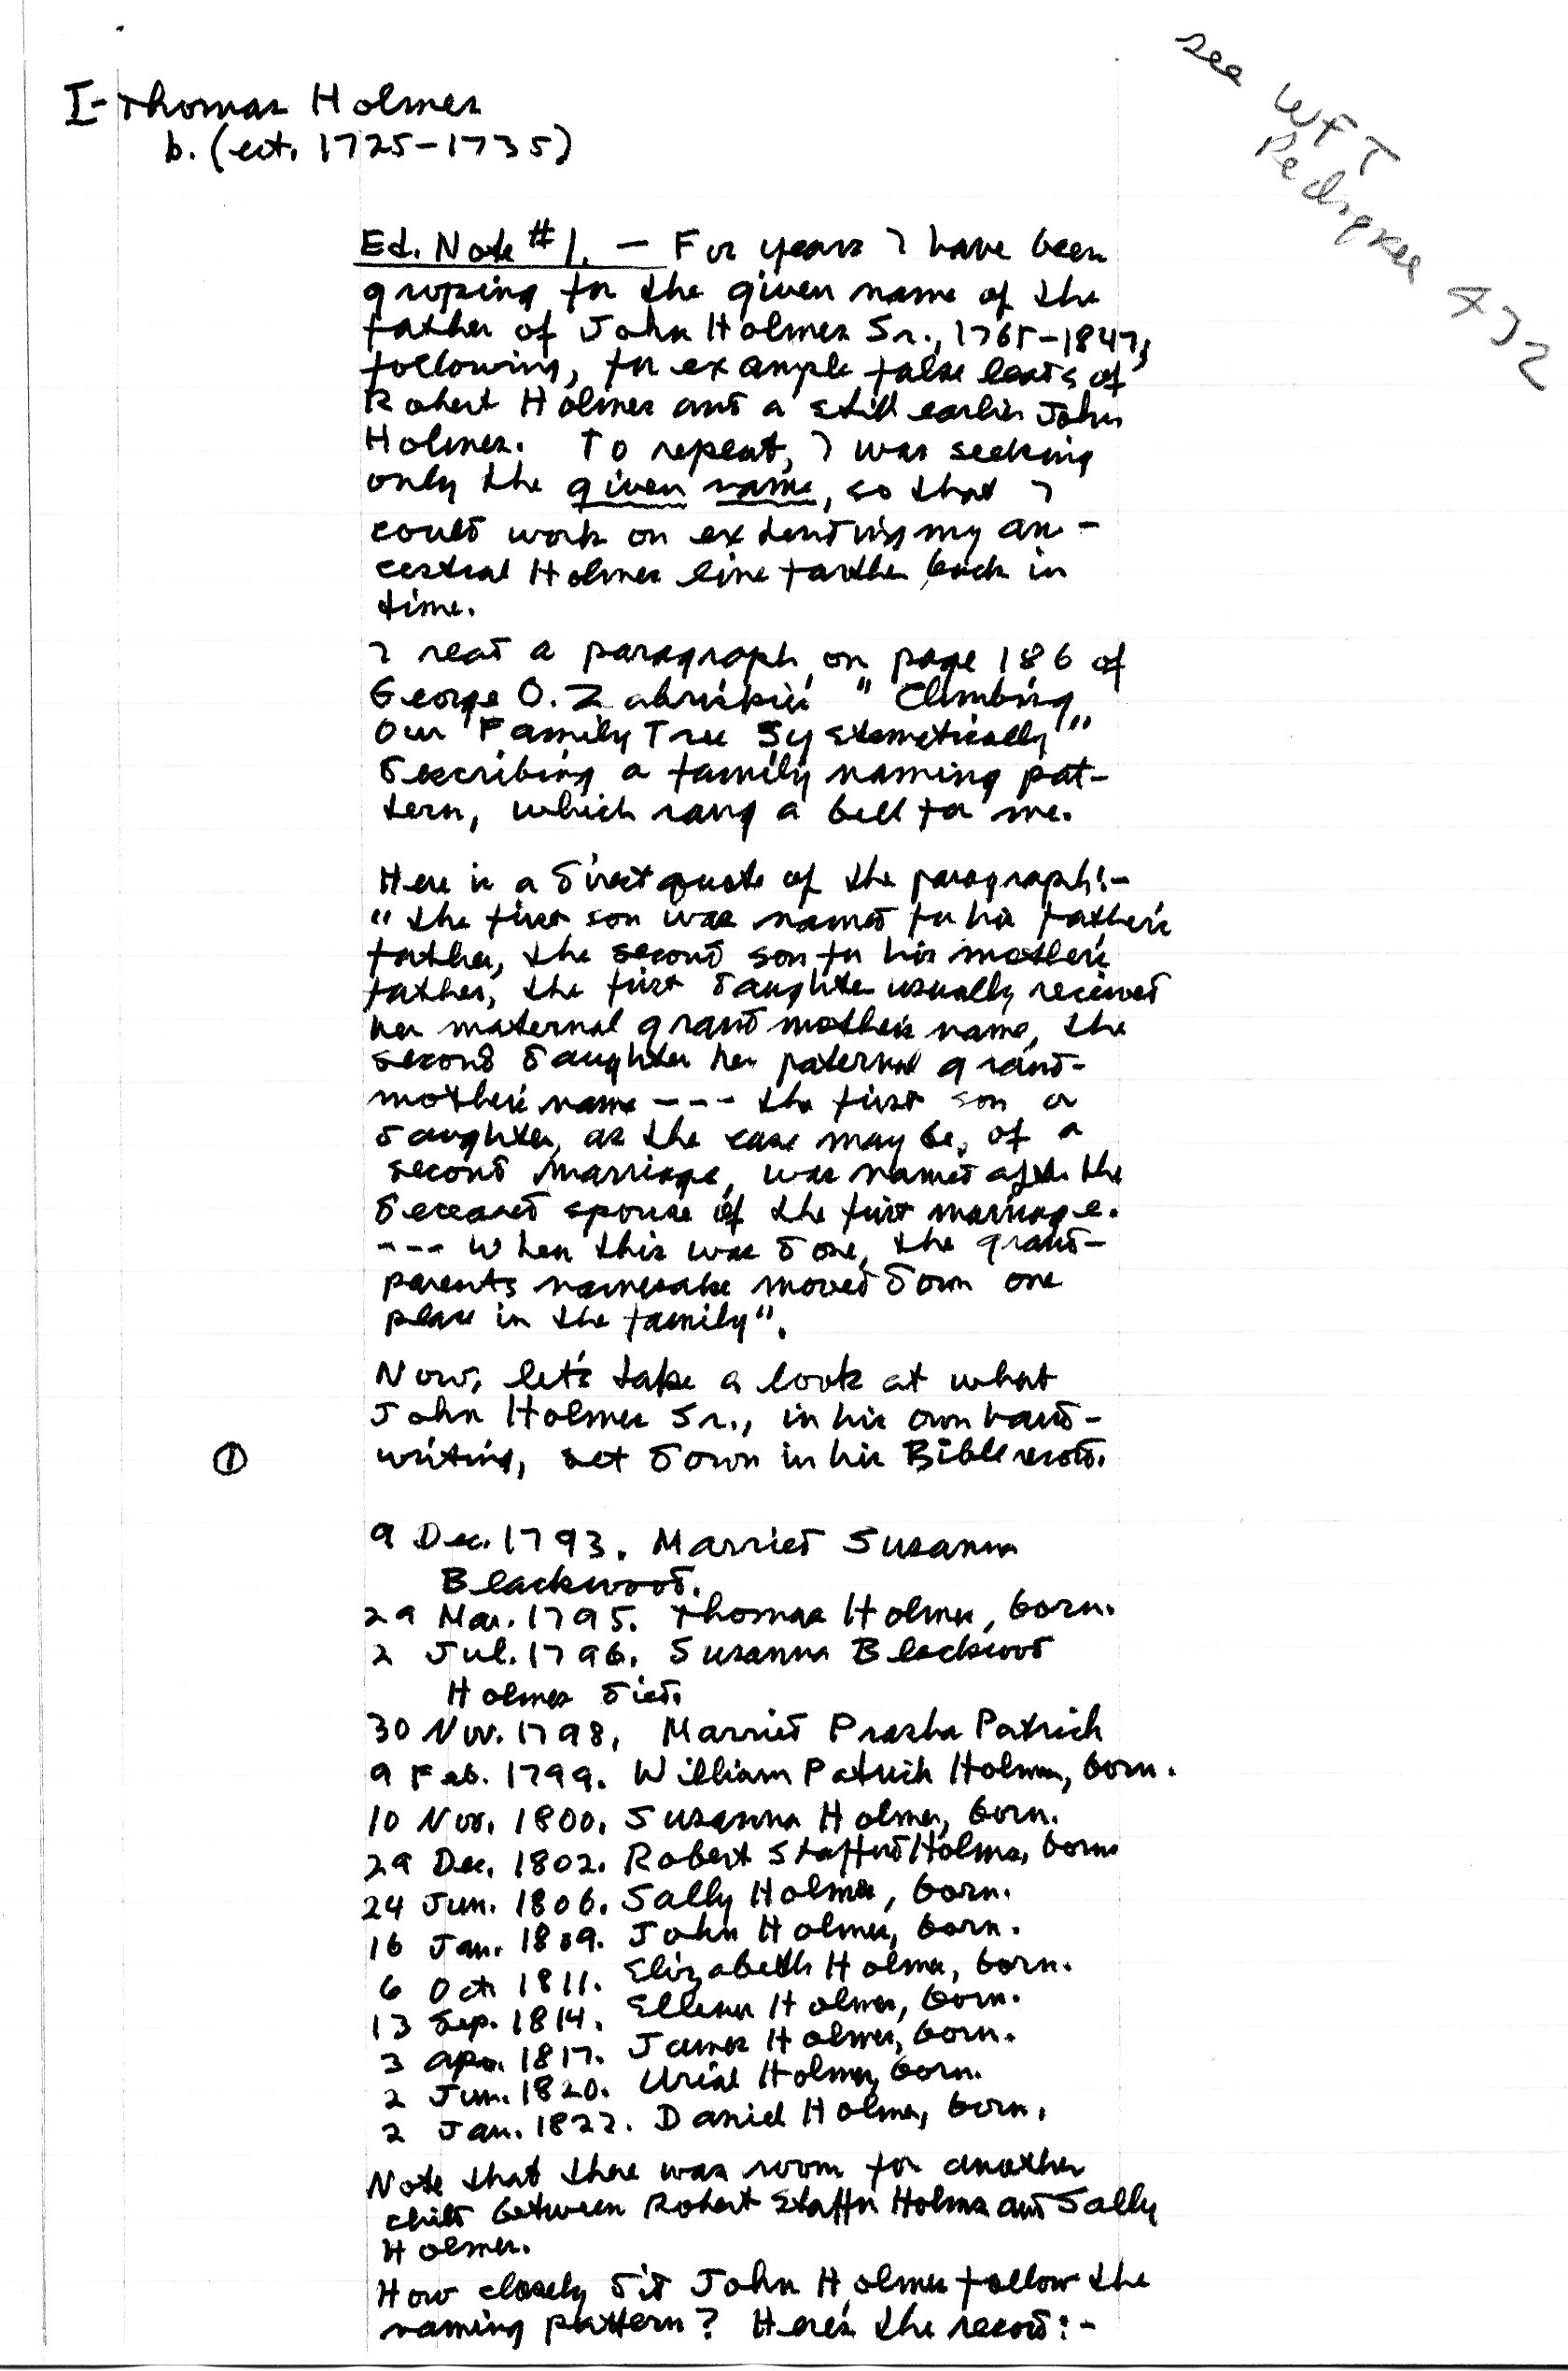 see WFT
Pedigree 472
I- Thomas Holmes
b. (est. 1725-1735)
Ed. Note #1. — For years I have been
groping for the given name of the
father of John Holmes Sr., 1765-1847,
following, for example false leads of
Robert Holmes and a still earlier John
Holmes. To repeat, I was seeking
only the given name, so that I
could work on extending my an-
cestral Holmes line farther back in
time.
I read a paragraph on page 186 of
George O. Zabriskie's "Climbing
Our Family Tree Systematically"
describing a family naming pat-
tern, which rang a bell for me.
Here is a direct quote of the paragraph:-
"the first son was named for his father's
father, the second son for his mother's
father, the first daughter usually received
her maternal grandmother's name, the
second daughter her paternal grand-
mother's name ---- the first son or
daughter, as the case may be, of a
second marriage, was named after the
deceased spouse of the first marriage.
--- When this was done, the grand-
parents namesake moved down one
place in the family".
Now, let's take a look at what
John Holmes Sr., in his own hand-
① writing, set down in his Bible record.
9 Dec. 1793. Married Susanna
Blackwood.
29 Mar. 1795. Thomas Holmes, born.
2 Jul. 1796. Susanna Blackwood
Holmes died.
30 Nov. 1798, Married Prasha Patrick
9 Feb. 1799. William Patrick Holmes, born.
10 Nov. 1800. Susanna Holmes, born.
29 Dec. 1802. Robert Stafford Holmes, born.
24 Jun. 1806. Sally Holmes, born.
16 Jan. 1809. John Holmes, born.
6 Oct 1811. Elizabeth Holmes, born.
13 Sep. 1814. Ellenor Holmes, born.
3 Apr. 1817. James Holmes, born.
2 Jun. 1820. Uriah Holmes, born.
2 Jan. 1822. Daniel Holmes, born.
Note that there was room for another
child between Robert Staffor Holmes and Sally
Holmes.
How closely did John Holmes follow the
naming pattern? Here's the record:-